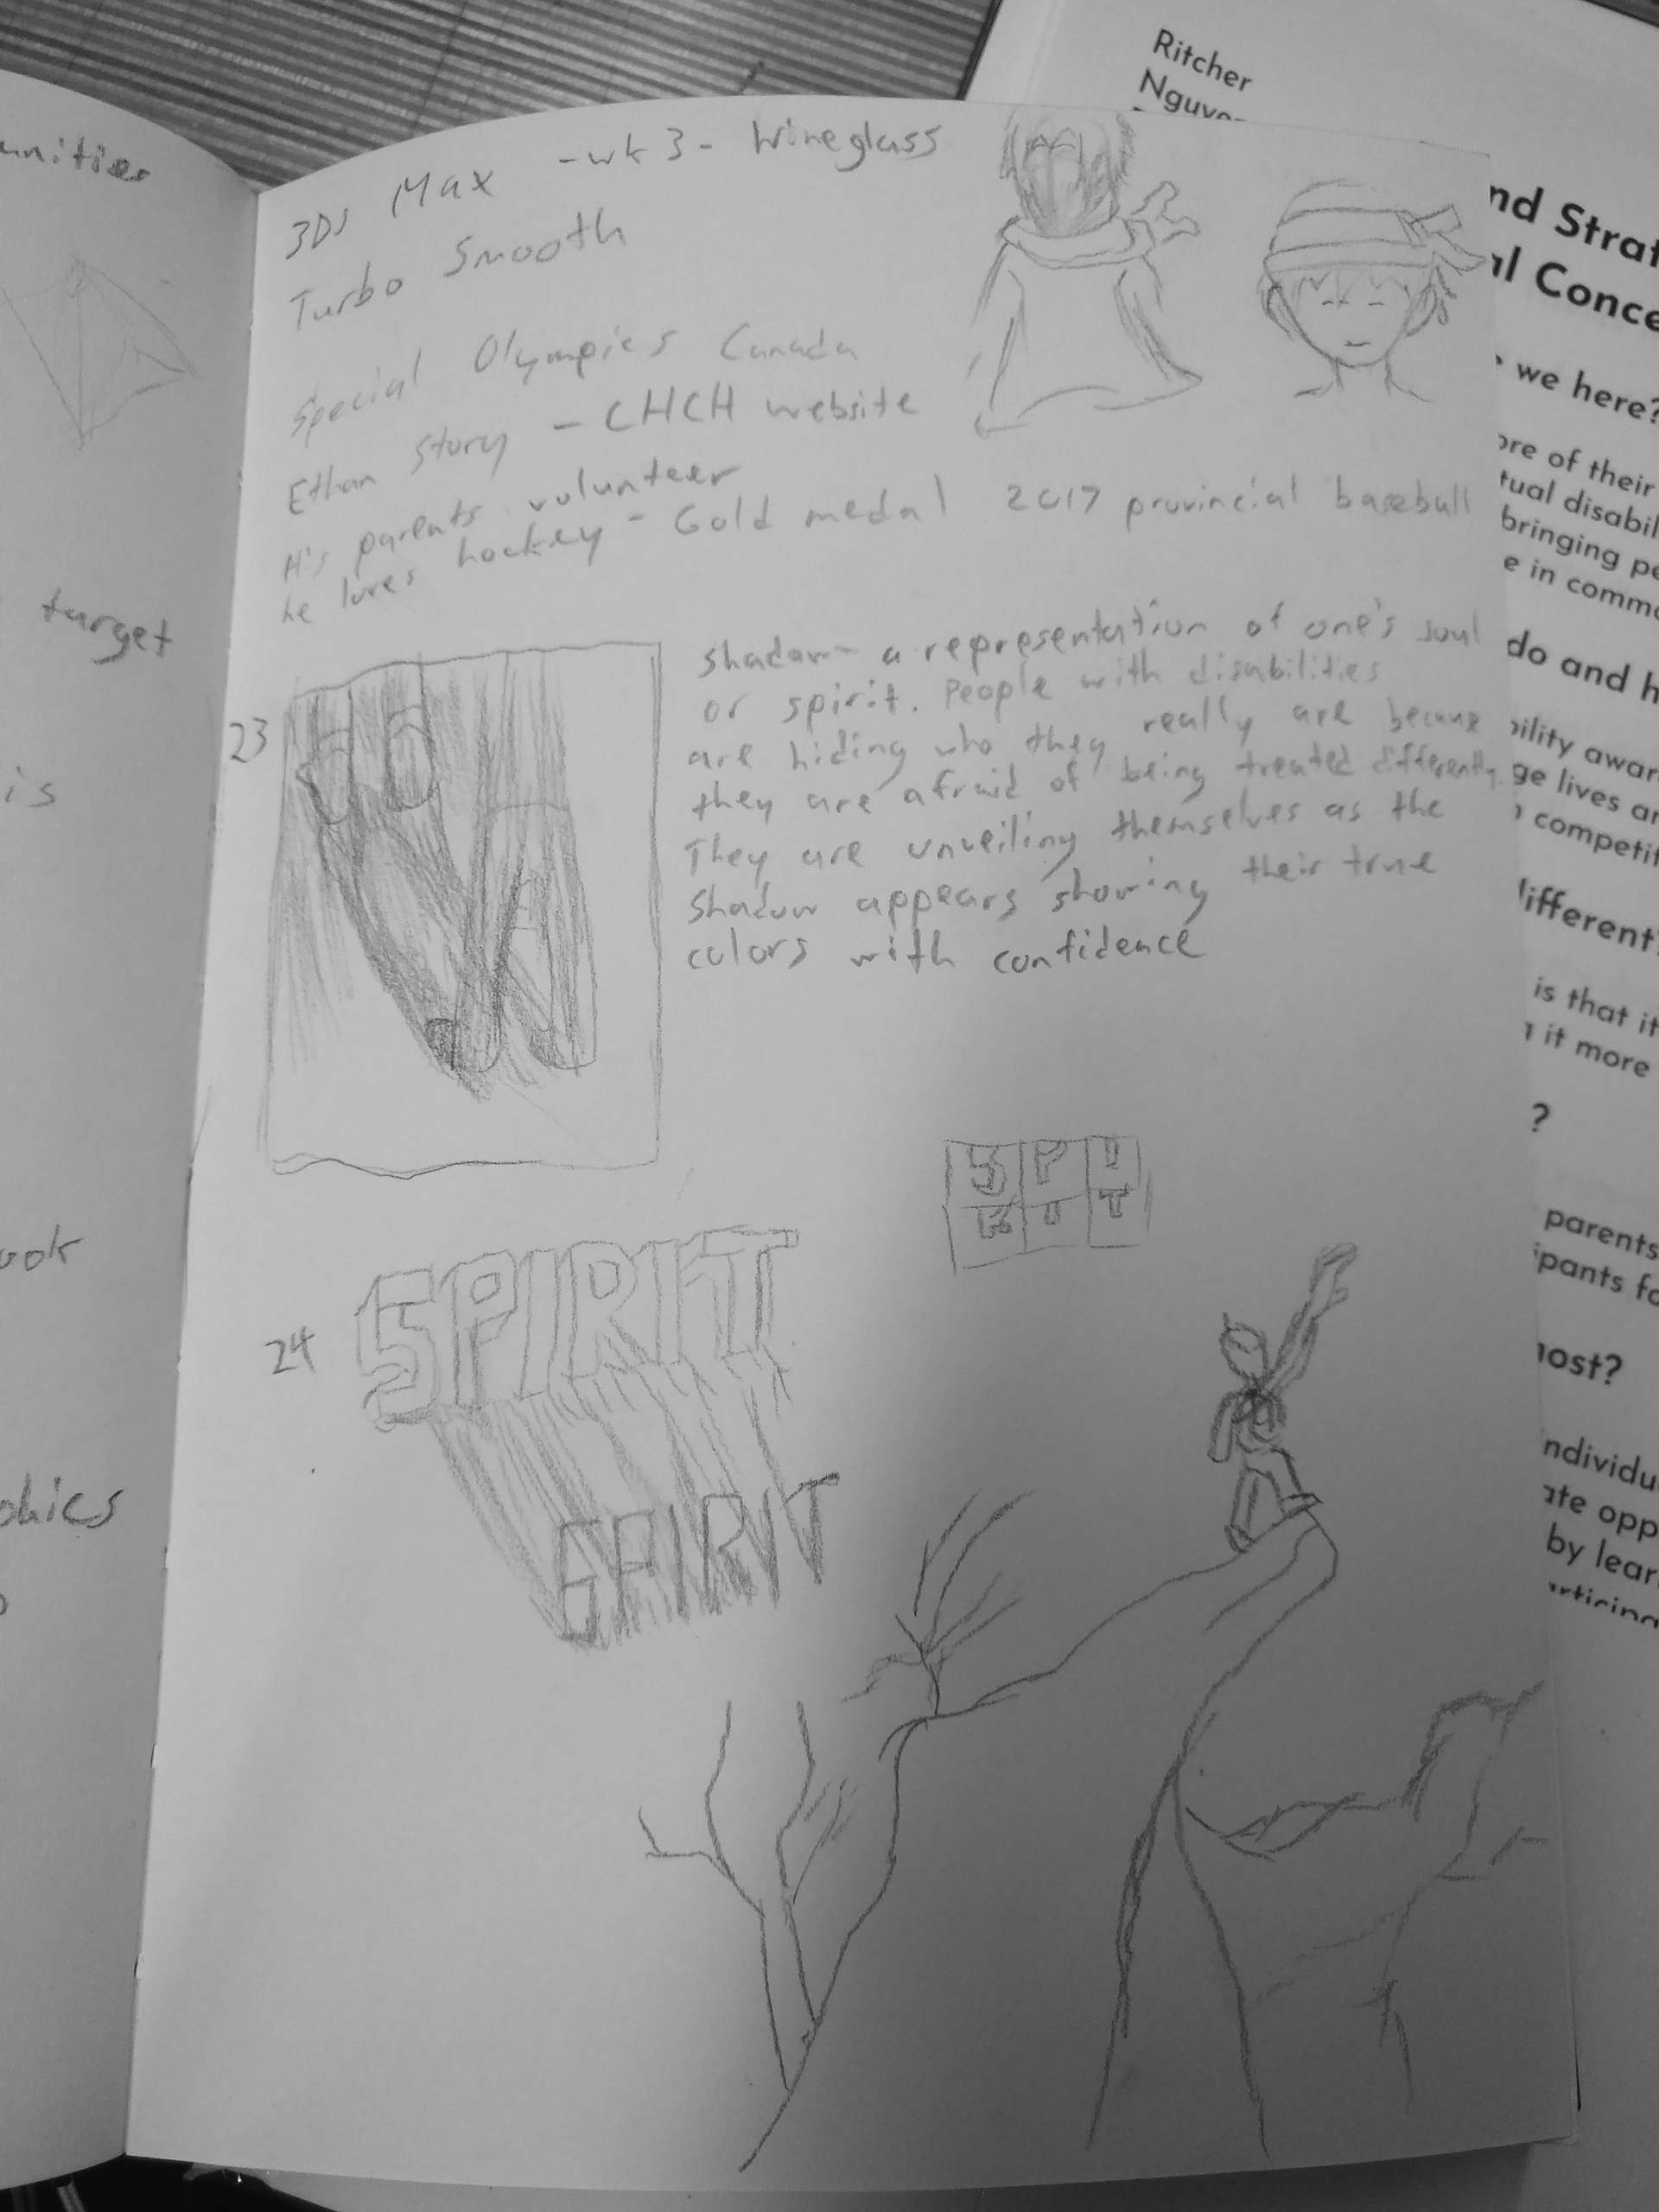 unities
target
is
ook
phics
3Ds Max -wk 3- Wineglass
Turbo Smooth
Special Olympics Canada
Ethan story - CHCH website
His parents volunteer
he loves hockey - Gold medal 2017 provincial baseball
23
Shadow- a representation of one's soul
or spirit. People with disabilities
are hiding who they really are because
they are afraid of being treated differently.
They are unveiling themselves as the
shadow appears showing their true
colors with confidence
SPI
RIT
24
SPIRIT
SPIRIT
Ritcher
nd Strat
al Conce
we here?
ore of their
tual disabil
bringing pe
e in comm
do and h
bility awar
ge lives ar
competit
different
is that it
it more
?
parents
ipants fo
nost?
ndividu
ate opp
by lear